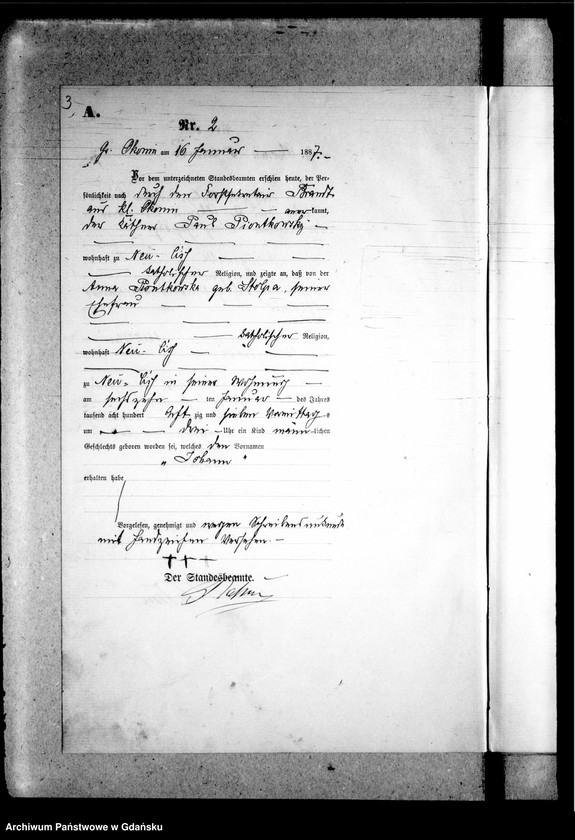 3
A.
Nr. 2
Gr. Okonin am 16 Januar 1887.
Vor dem unterzeichneten Standesbeamten erschien heute, der Per-
sönlichkeit nach durch den Forstsekretair Brandt
aus kl. Okonin anerkannt,
der Käthner Paul Piontkowski
wohnhaft zu Neu-
katholischer Religion, und zeigte an, daß von der
Anna Piontkowska geb. Stolpa, seiner
Ehefrau
katholischer Religion,
wohnhaft Neu-
zu Neu- in seiner Wohnung
am sechszehnten Januar des Jahres
tausend acht hundert acht zig und sieben Vormittags
um drei Uhr ein Kind männlichen
Geschlechts geboren worden sei, welches den Vornamen
„Johann“
erhalten habe
Vorgelesen, genehmigt und wegen Schreibensunkunde
mit Handzeichen versehen.
+++
Der Standesbeamte.
Archiwum Państwowe w Gdańsku